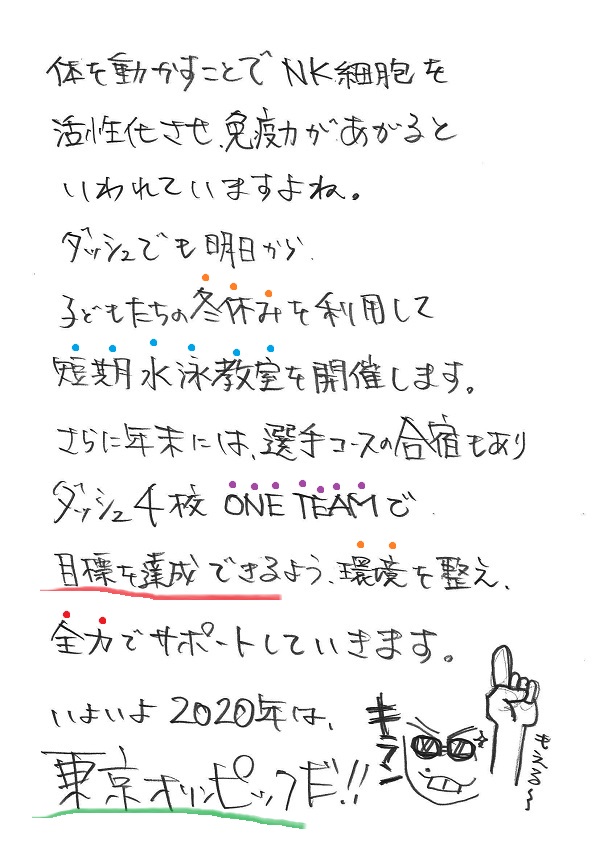 体を動かすことでNK細胞を
活性化させ、免疫力があがると
いわれていますよね。
ダッシュでも明日から、
子どもたちの冬休みを利用して
短期水泳教室を開催します。
さらに年末には、選手コースの合宿もあり
ダッシュ4校 ONE TEAMで
目標を達成できるよう、環境を整え、
全力でサポートしていきます。
いよいよ2020年は、
東京オリンピックだ!!
キラーン